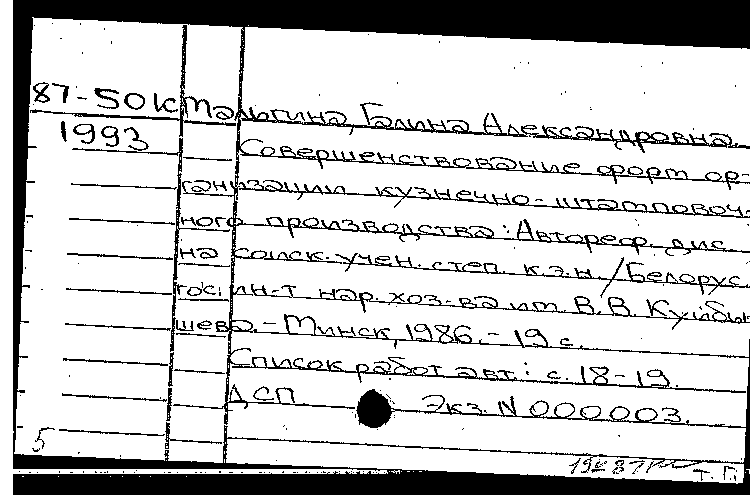 87-50к Мальгина, Галина Александровна.
1993 Совершенствование форм ор-
ганизации кузнечно-штамповоч-
ного производства: Автореф. дис.
на соиск. учен. степ. к.э.н. / Белорус.
гос. ин-т нар. хоз-ва им. В.В. Куйбы-
шева. - Минск, 1986. - 19 с.
Список работ авт.: с. 18-19.
ДСП Экз. N 000003.
5
т. п.